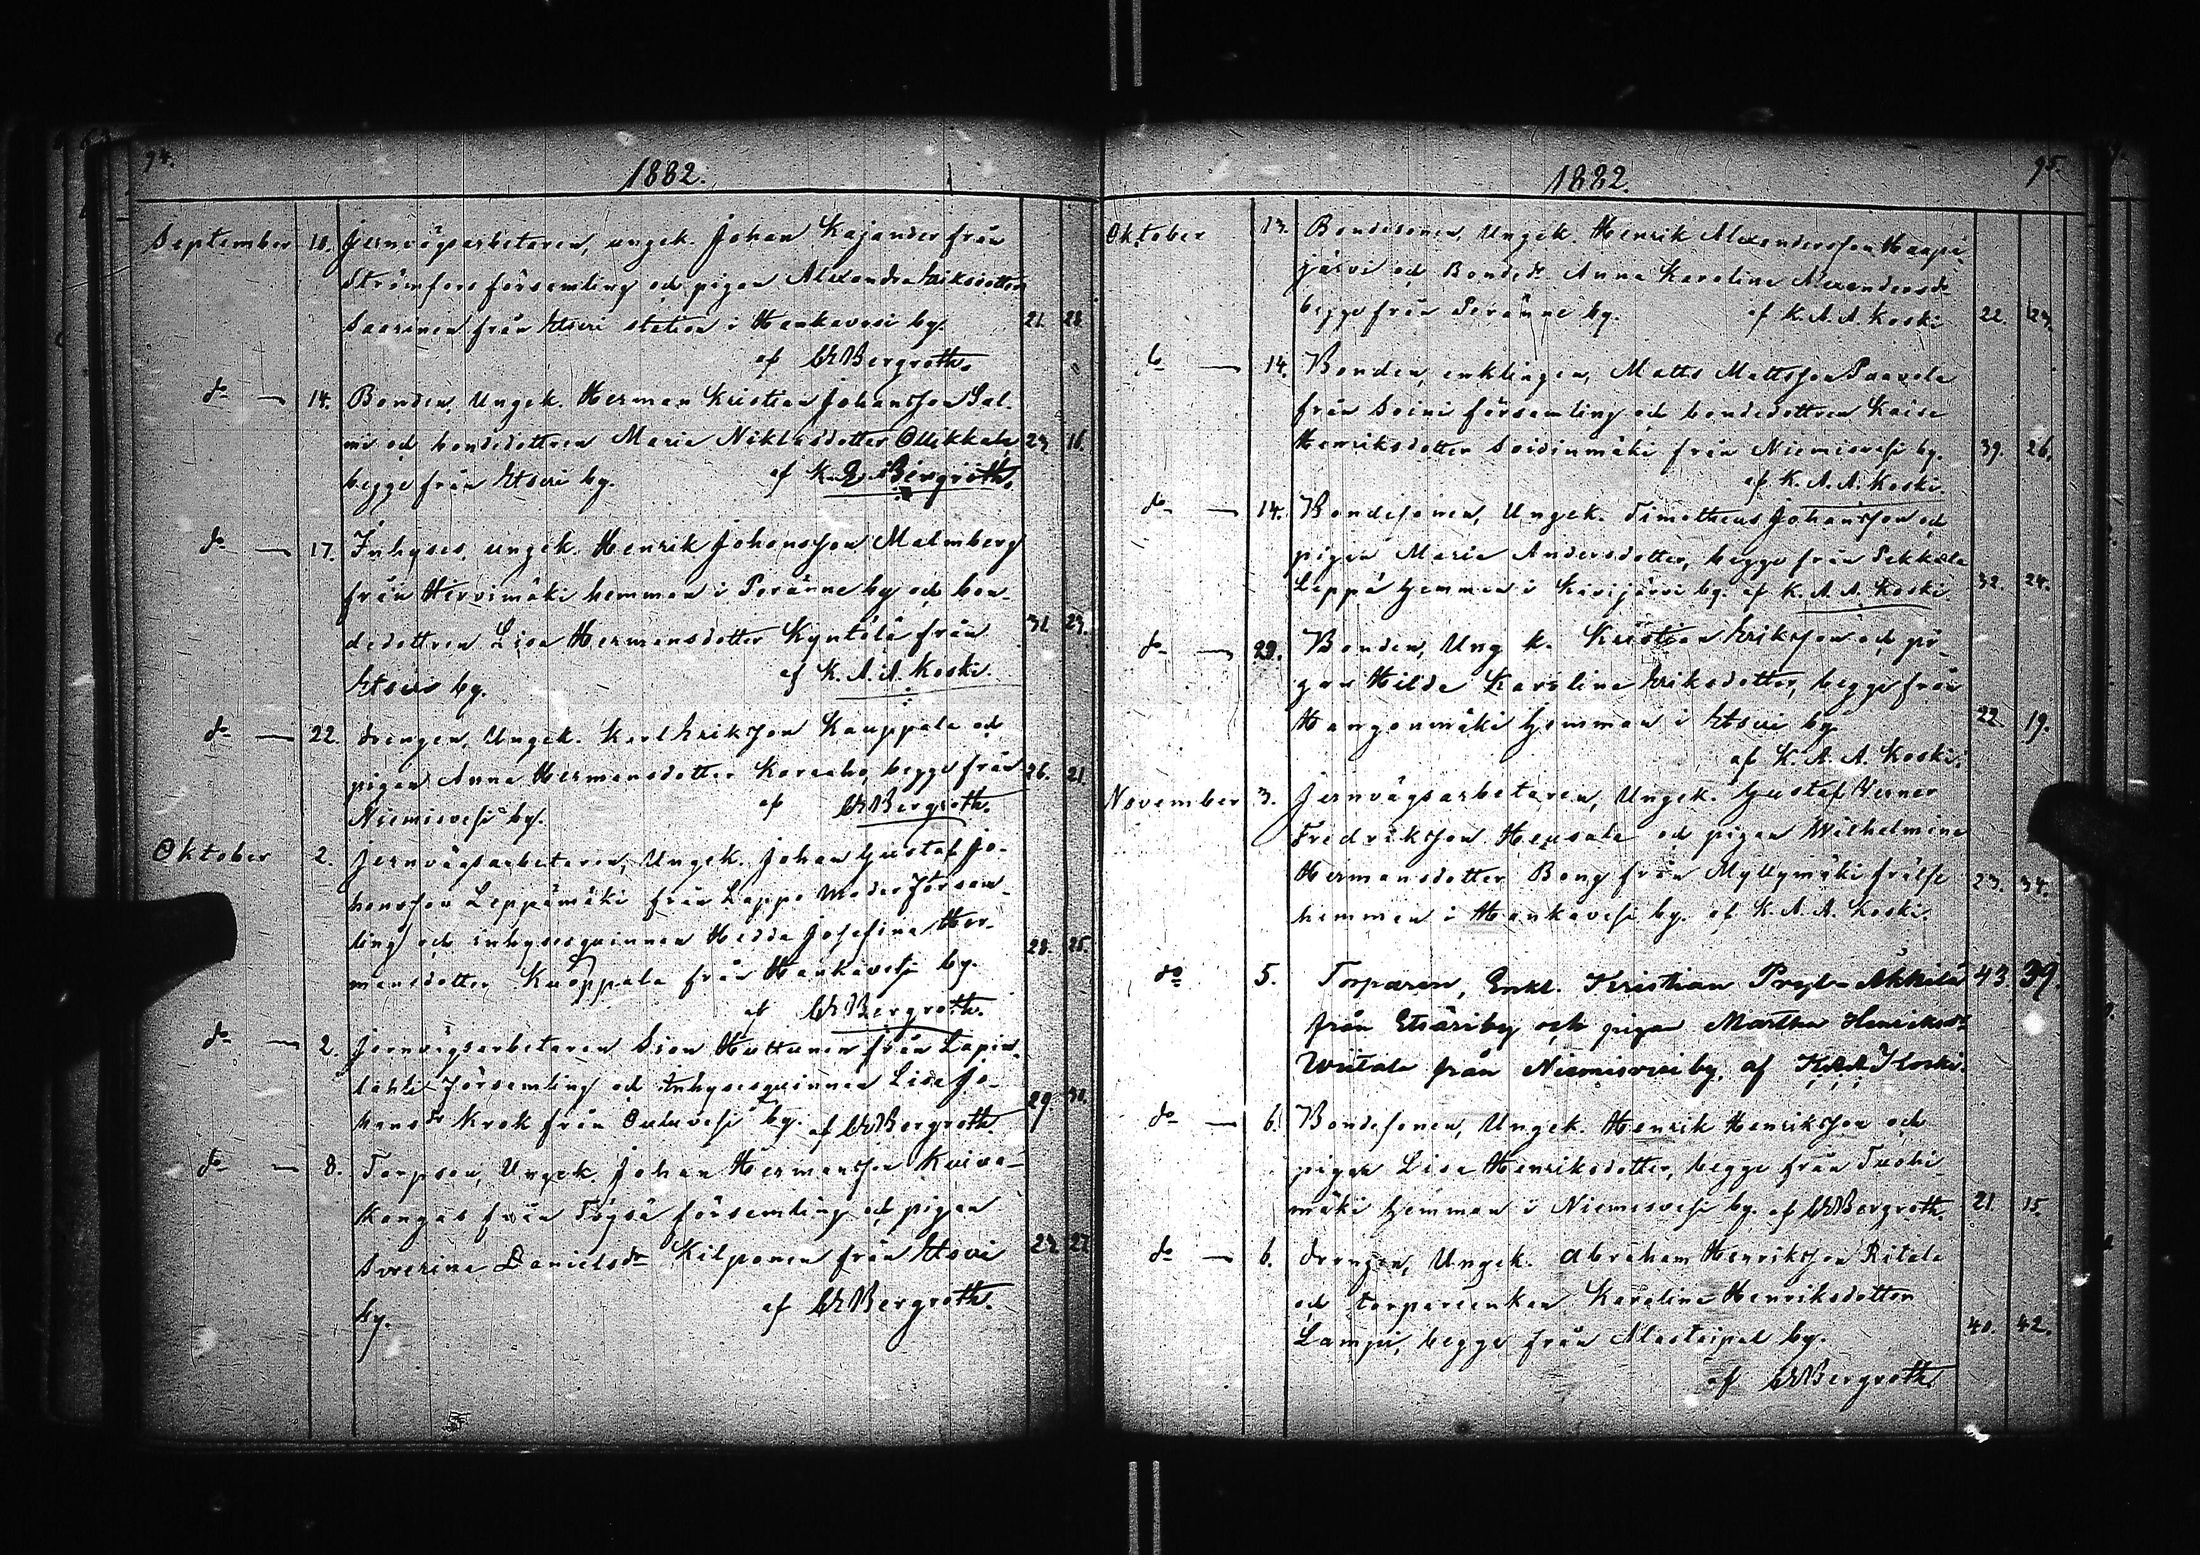 94.
1882.
September 10. Jernvägsarbetaren, ungk. Johan Kajander från
Strömfors församling och pigan Alexandra Eriksdotter
Saarinen från Etseri station i Hankavesi by. 21. 28
af CEBergroth.
do 14. Bonden, Ungk. Herman Kristian Johansson Sal-
mi och bondedottren Maria Niklasdotter Ollikkala 23 18.
begge från Etseri by. af Bergroth.
do 17. Inhyses, ungk. Henrik Johansson Malmberg
från Hirvimäki hemman i Peränne by och bon-
dedottren Lisa Hermansdotter Kyntölä från 31 23.
Etseri by. af K. A. A. Koski.
do 22. Drengen, Ungk. Karl Eriksson Kauppala och
pigan Anna Hermansdotter begge från 26. 21.
Niemisvesi by. af CEBergroth.
Oktober 2. Jernvägsarbetaren, Ungk. Johan Gustaf Jo-
hansson Leppämäki från Lappo Moder försam-
ling och inhysesqvinnan Hedda Josefina Her-
mansdotter Kauppala från Hankavesi by. 28. 25.
af CEBergroth.
do 2. Jernvägsarbetaren Sion Huttunen från Lapin-
lahti församling och Inhysesqvinnan Lisa Jo-
hansdr Krok från Ouluvesi by. af CEBergroth. 29.
do 8. Torpson, Ungk. Johan Hermansson Kuiva-
kangas från Töysä församling och pigan
Severina Danielsdr Kilponen från Etseri 23 27
by. af CEBergroth.
1882. 95.
Oktober 13. Bondesonen, Ungk. Henrik Alexandersson Haapa-
järvi och Bondedr Anna Karolina Alexandersdr
begge från Peränne by. af K. A. A. Koski 22. 23.
do 14. Bonden, enklingen, Matts Mattsson Paavola
från Soini församling och bondedottren Kaisa
Henriksdotter Soidinmäki från Niemisvesi by. 39. 26.
af K. A. A. Koski.
do 14. Bondesonen, Ungk. Timotheus Johansson och
pigan Maria Andersdotter, begge från Pekkola
Leppä hemman i Kivijärvi by. af K. A. A. Koski 32. 24.
do 29. Bonden, Ung k. Kristian Eriksson och pi-
gan Hilda Karolina Eriksdotter, begge från
Hangonmäki hemman i Etseri by 22 19.
af K. A. A. Koski.
November 3. Jernvägsarbetaren, Ungk. Gustaf Verner
Fredriksson Heusala och pigan Wilhelmina
Hermansdotter Bong från Myllymäki frälse 23. 34.
hemman i Hankavesi by. af K. A. A. Koski.
do 5. Torparen, Enkl. Kristian Akkila 43 39.
från Etsäri by och pigan Martha Henriksdr
Writala från Niemisvesi by. af Koski.
do 6. Bondesonen, Ungk. Henrik Henriksson och
pigan Lisa Henriksdotter, begge från Tuohi-
mäki hemman i Niemisvesi by. af CEBergroth. 21. 15.
do 6. Drengen, Ungk. Abraham Henriksson Ritala
och torpareenkan Karolina Henriksdotter
Lampi, begge från Alastaipal by. 40. 42.
af CEBergroth.